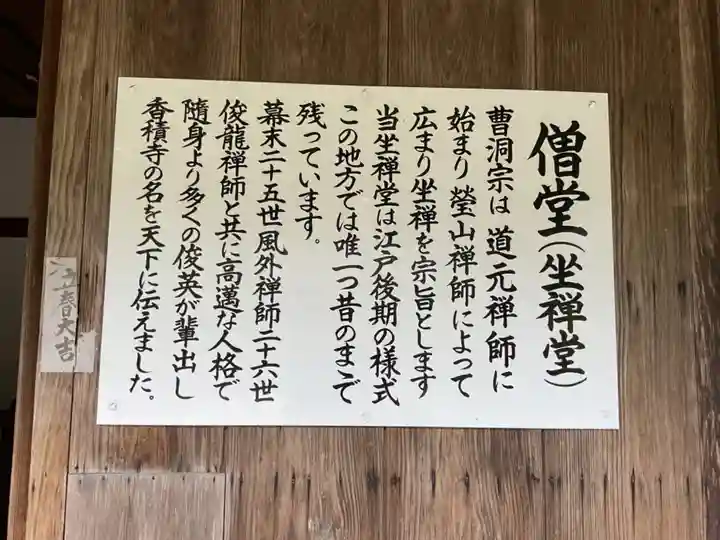 僧堂(坐禅堂)
曹洞宗は道元禅師に
始まり瑩山禅師によって
広まり坐禅を宗旨とします
当坐禅堂は江戸後期の様式
この地方では唯一つ昔のまゝで
残っています。
幕末二十五世風外禅師二十六世
俊龍禅師と共に高邁な人格で
随身より多くの俊英が輩出し
香積寺の名を天下に伝えました。
立春大吉